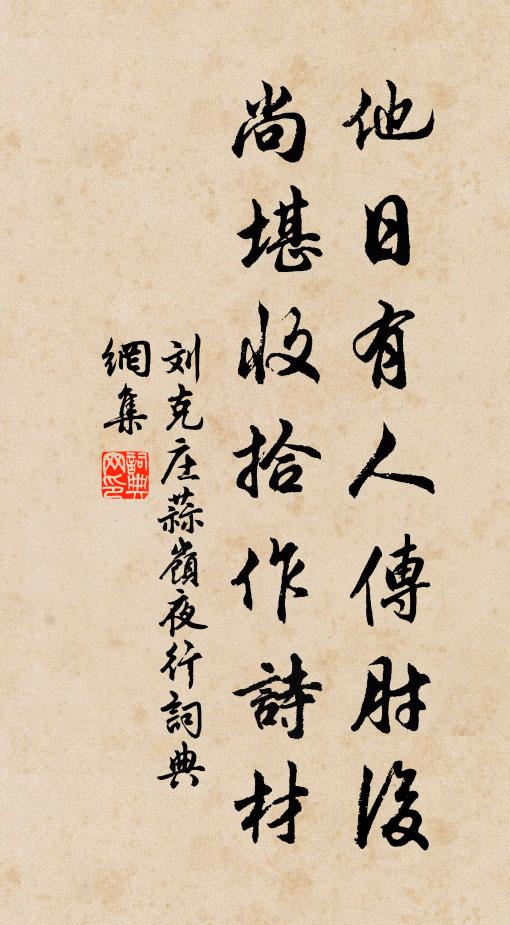 他日有人傳肘後
尚堪收拾作詩材
刘克庄蒜嶺夜行詞典
網集
詞典網印